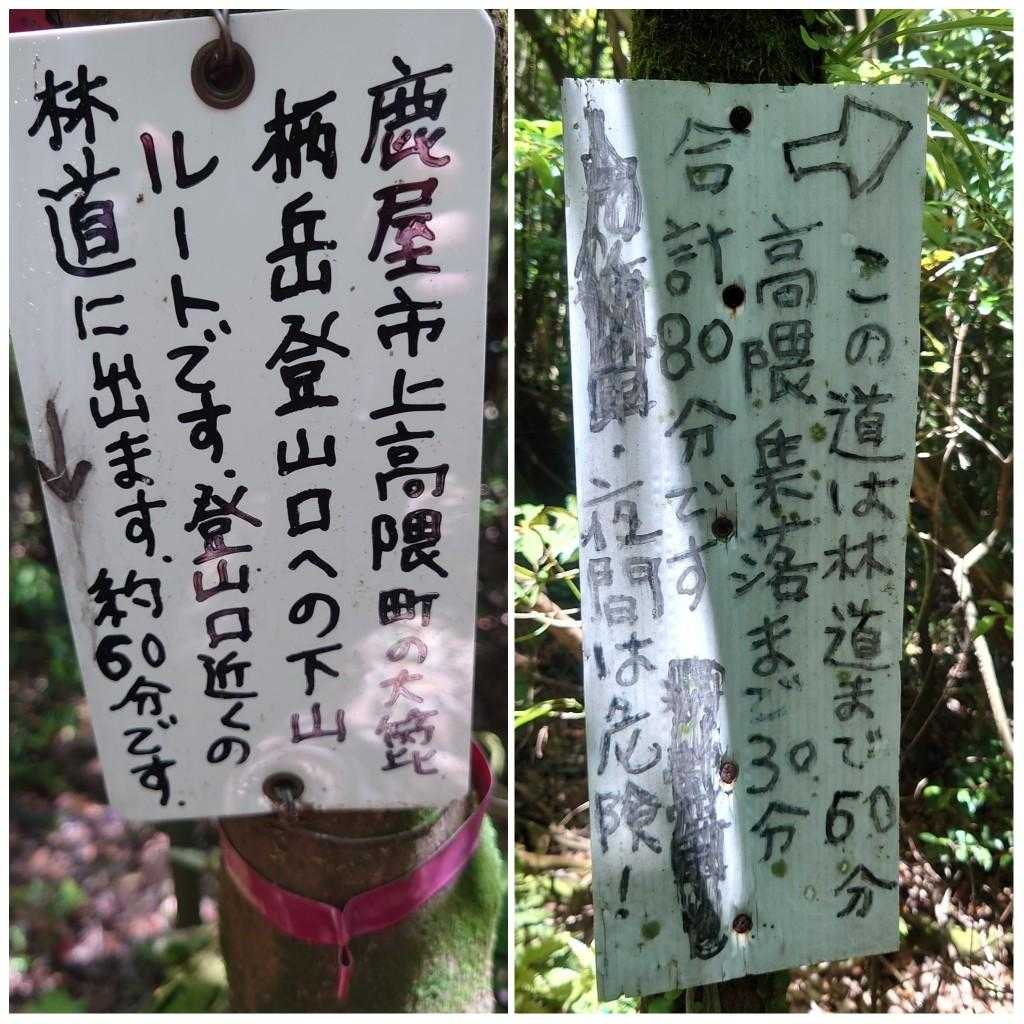 鹿屋市上高隈町の大箆
柄岳登山口への下山
ルートです。登山口近くの
林道に出ます。約60分です。
この道は林道まで60分
高隈集落まで30分
合計80分です
・夜間は危険!